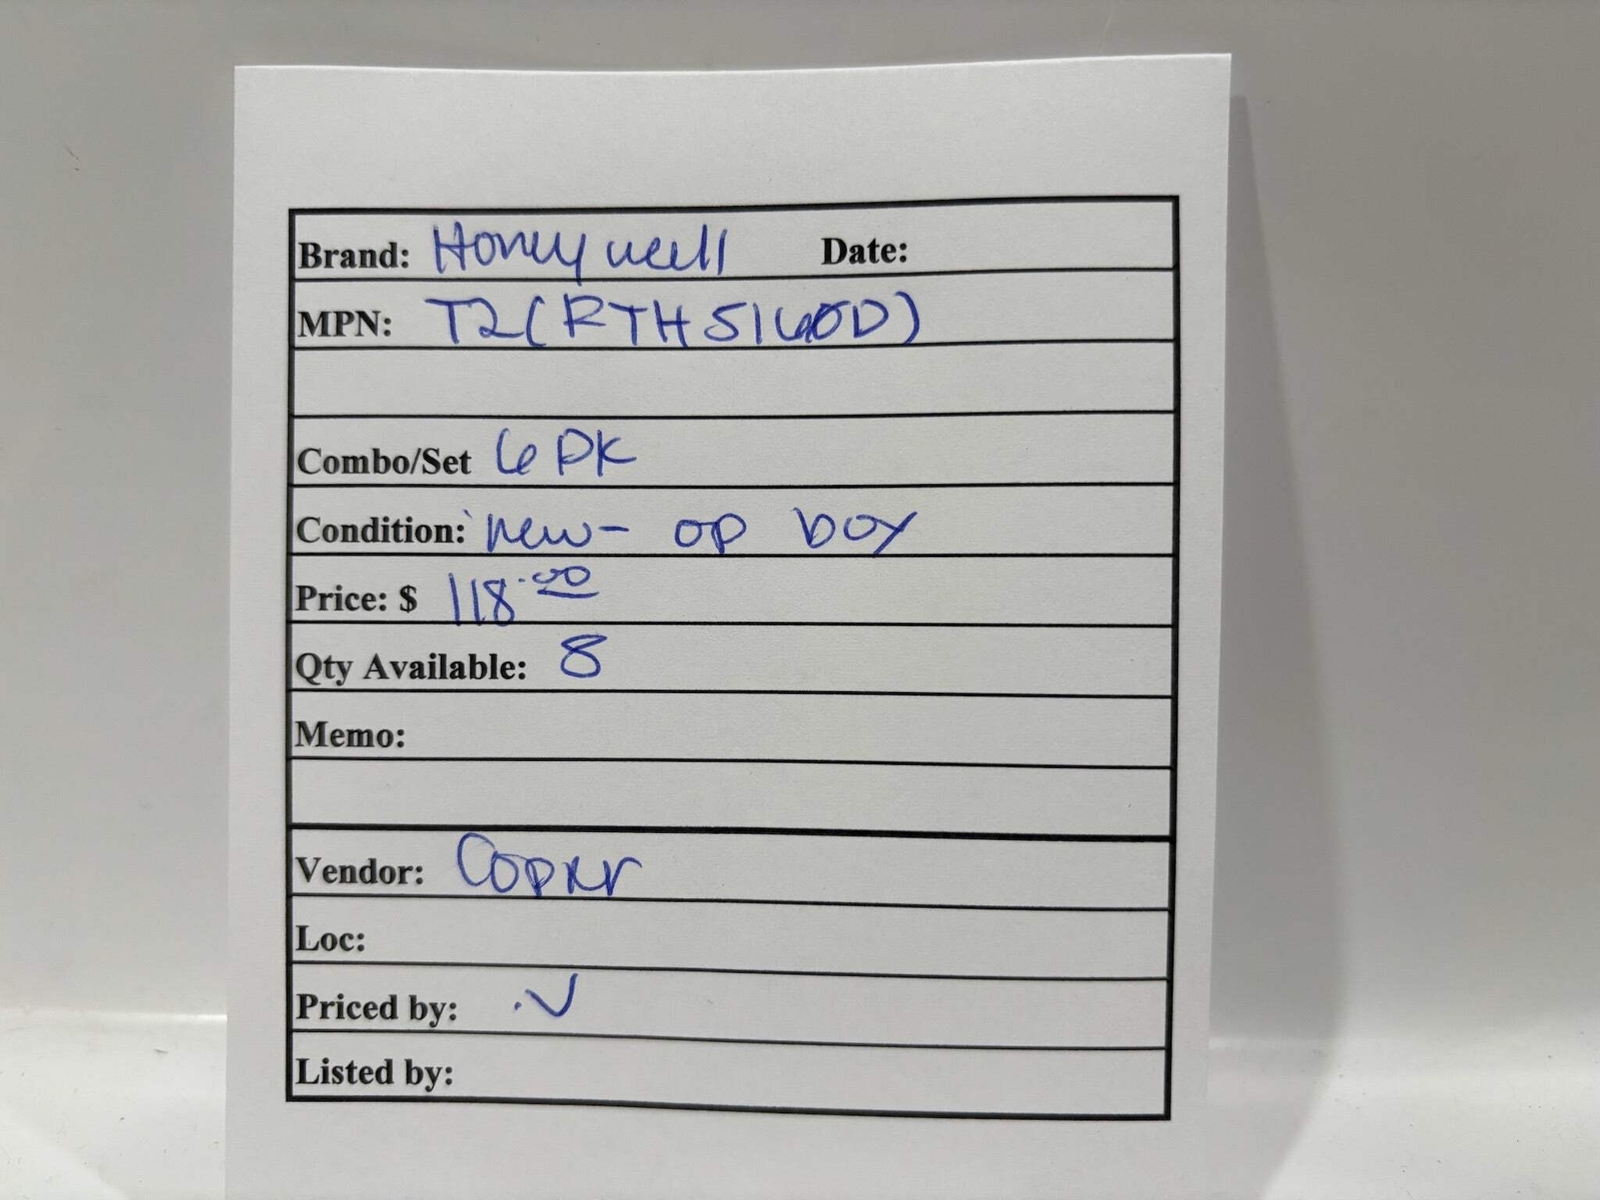 Brand: Honeywell Date:
MPN: T2(RTH5160D)
Combo/Set 6 PK
Condition: new - op box
Price: $ 118.00
Qty Available: 8
Memo:
Vendor:
Loc:
Priced by: V
Listed by: